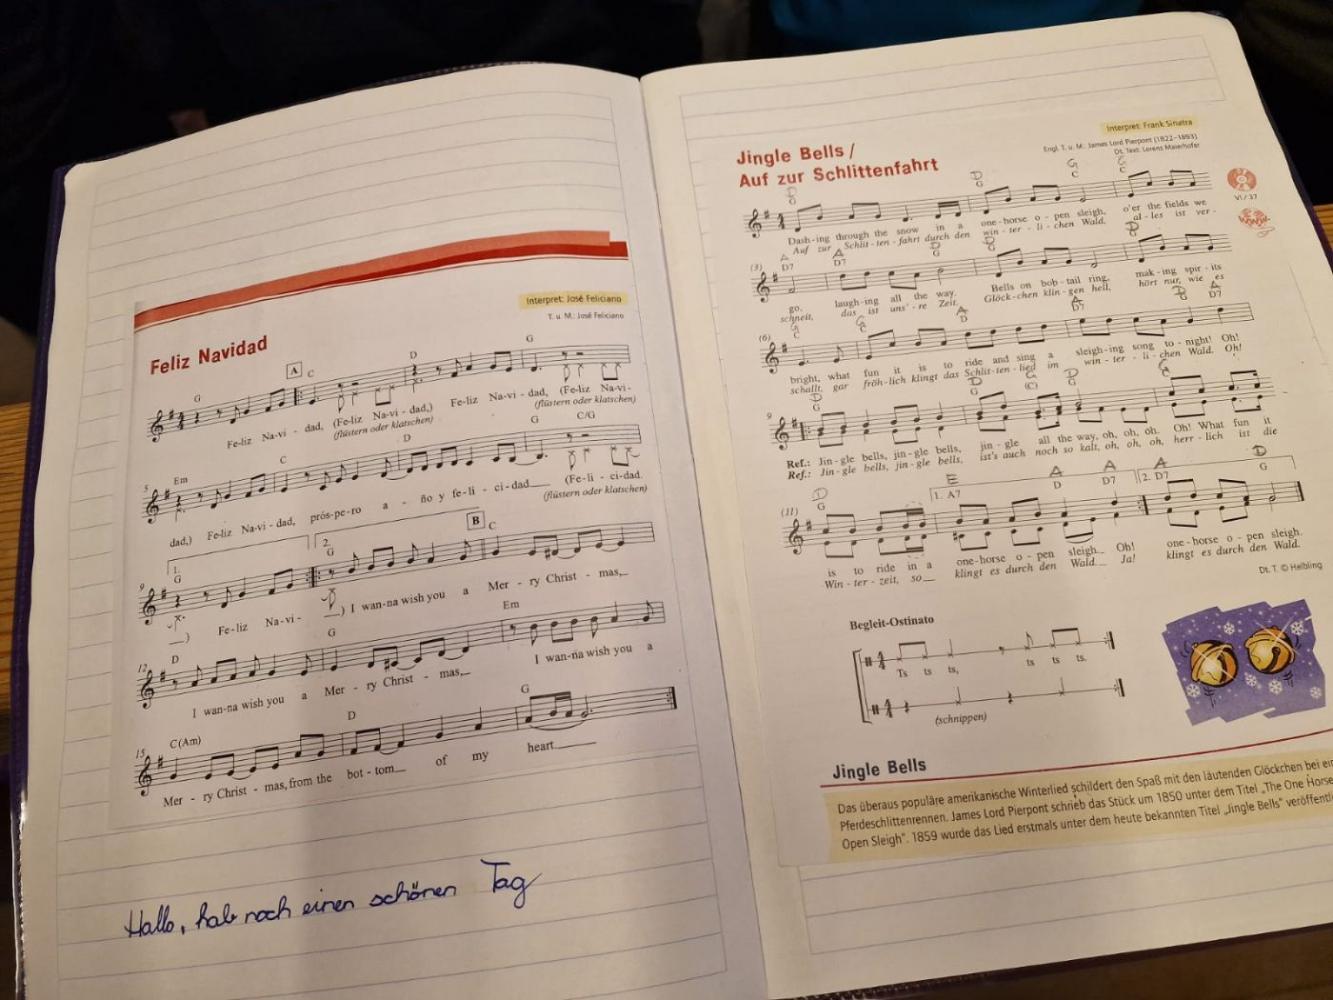 Interpret: José Feliciano
T. u. M.: José Feliciano
Feliz Navidad
G A C D G
Fe-liz Na-vi - dad, (Fe-liz Na-vi - dad,) Fe-liz Na-vi - dad, (Fe-liz Na-vi-
(flüstern oder klatschen) (flüstern oder klatschen)
5 Em C D G C/G
dad,) Fe-liz Na-vi - dad, prós-pe-ro a - ño y fe-li - ci-dad (Fe-li - ci-dad.
(flüstern oder klatschen)
9 1. G 2. G B C
) Fe-liz Na-vi- ) I wan-na wish you a Mer - ry Christ - mas,
12 D G Em
I wan-na wish you a Mer - ry Christ - mas, I wan-na wish you a
15 C(Am) D G
Mer - ry Christ - mas, from the bot - tom of my heart
Hallo, hab noch einen schönen Tag
Interpret: Frank Sinatra
Engl. T. u. M.: James Lord Pierpont (1822–1893)
Dt. Text: Lorenz Maierhofer
Jingle Bells /
Auf zur Schlittenfahrt
D G C G
G G C C
VI/37
Dash-ing through the snow in a one-horse o - pen sleigh, o'er the fields we
Auf zur Schlit-ten-fahrt durch den win - ter - li - chen Wald, al - les ist ver -
(3) A A D D D
D7 D7 G G G
go, laugh-ing all the way. Bells on bob - tail ring, mak - ing spir - its
schneit, das ist uns' - re Zeit. Glöck-chen klin - gen hell, hört nur, wie es
(6) G G A A D A
C C D D7 G D7
bright, what fun it is to ride and sing a sleigh-ing song to - night! Oh!
schallt, gar fröh-lich klingt das Schlit-ten-lied im win - ter - li - chen Wald. Oh!
9 D D G D G
G G (C) G C
Ref.: Jin - gle bells, jin - gle bells, jin - gle all the way, oh, oh, oh. Oh! What fun it
Ref.: Jin - gle bells, jin - gle bells, ist's auch noch so kalt, oh, oh, oh, herr - lich ist die
(11) D E A A A D
G 1. A7 D D7 2. D7 G
is to ride in a one-horse o - pen sleigh. Oh! one-horse o - pen sleigh.
Win - ter - zeit, so klingt es durch den Wald. Ja! klingt es durch den Wald.
Dt. T. © Helbling
Begleit-Ostinato
Ts ts ts, ts ts ts.
(schnippen)
Jingle Bells
Das überaus populäre amerikanische Winterlied schildert den Spaß mit den läutenden Glöckchen bei
Pferdeschlittenrennen. James Lord Pierpont schrieb das Stück um 1850 unter dem Titel „The One Horse
Open Sleigh". 1859 wurde das Lied erstmals unter dem heute bekannten Titel „Jingle Bells"